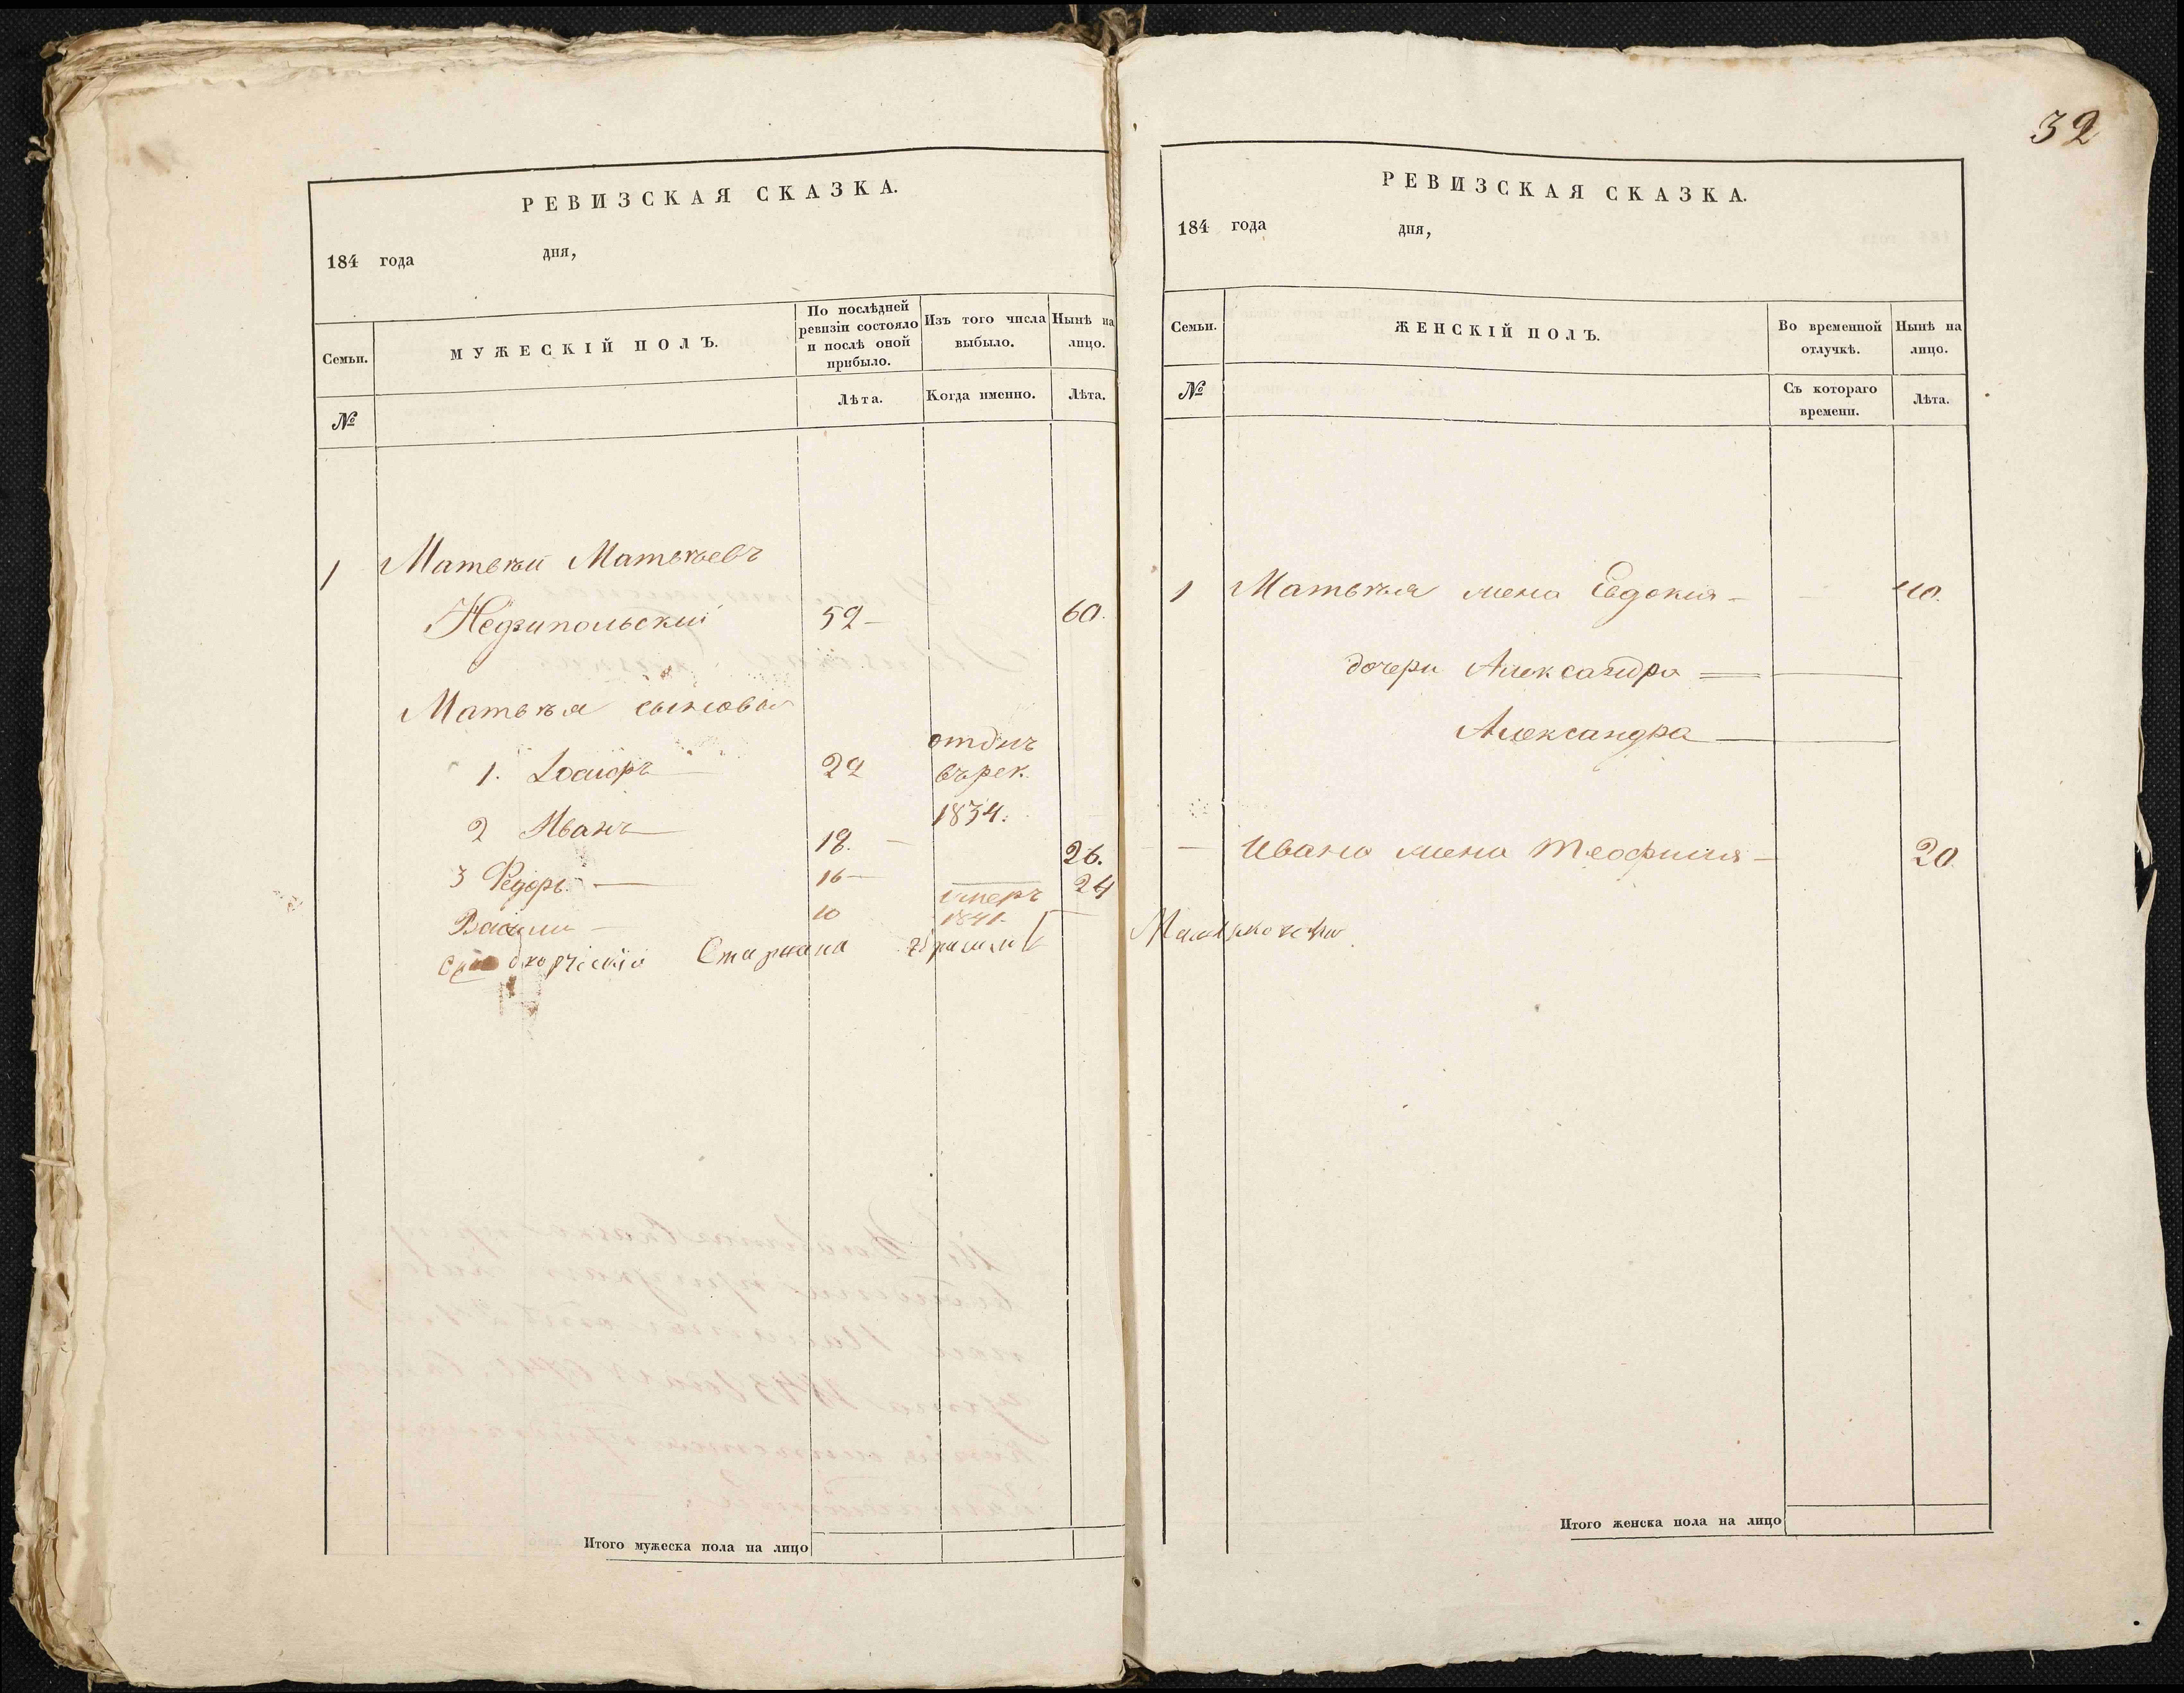 32
РЕВИЗСКАЯ СКАЗКА.
184 года дня,
Семьи.
МУЖЕСКІЙ ПОЛЪ.
По послѣдней ревизіи состояло и послѣ оной прибыло.
Изъ того числа выбыло.
Нынѣ на лицо.
№
Лѣта.
Когда именно.
Лѣта.
1 Матвѣй Матвѣевъ
59 60.
Матвѣя сыновья
1. 22
отданъ
въ рек.
1834.
2 Иванъ 18. 26.
3 Федоръ 16 24
Василий 10
умеръ
1841.
Итого мужеска пола на лицо
РЕВИЗСКАЯ СКАЗКА.
184 года дня,
Семьи.
ЖЕНСКІЙ ПОЛЪ.
Во временной отлучкѣ.
Нынѣ на лицо.
№
Съ котораго времени.
Лѣта.
1 Матвѣя жена Евдокия 40.
дочери Александра
Александра
Ивана жена Теофилия 20.
Итого женска пола на лицо